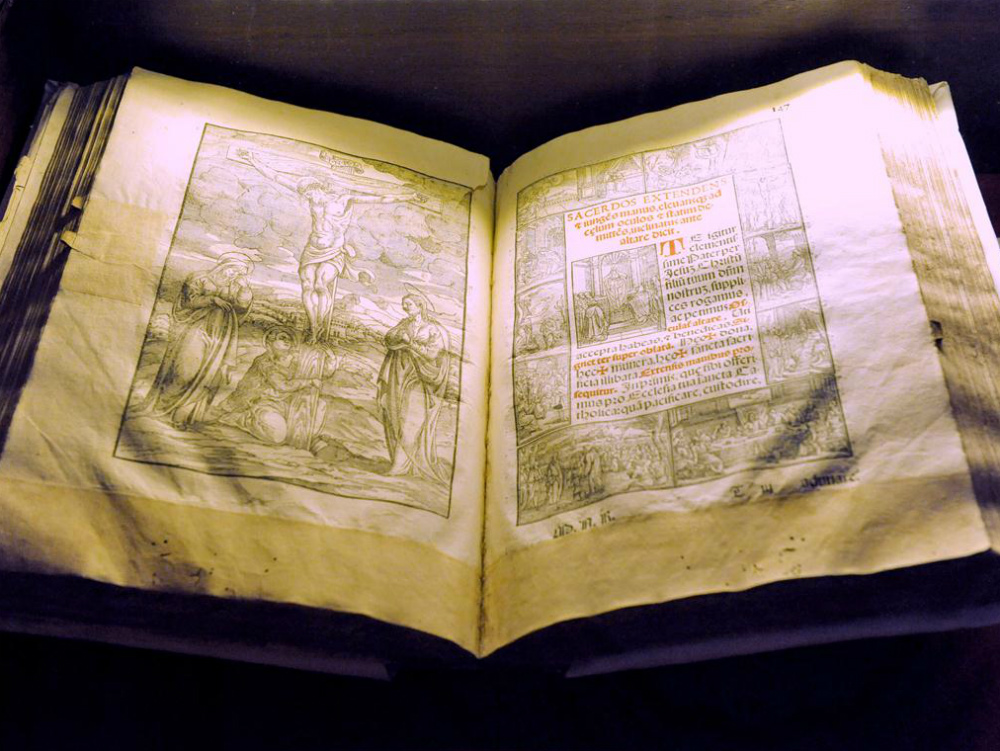 147
SACERDOS EXTENDENS
⁊ iungēs manus, eleuansq; ad
cęlum oculos, ⁊ statim de
mittēs, inclinatus ante
altare dicit.
TE igitur
clementis
sime Pater per
Iesuz Christū
filiū tuum dñm
nostruz, suppli
ces rogamus,
ac petimus,
culat altare. Uti
accepta habeas, ⁊ benedicas, Si
gnet ter super oblata. Hęc ✠ dona,
hęc ✠ munera, hęc ✠ sancta sacri
ficia illibata. Extensis manibus pro
sequitur. In primis, que tibi offeri
mus pro Ecclesia tua sancta Ca
tholica: quā pacificare, custodire,